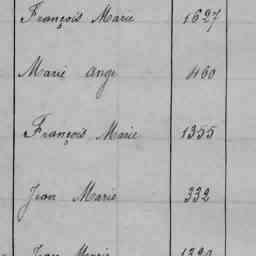 François Marie 1627
Marie Ange 460
François Marie 1355
Jean Marie 332
Jean Marie